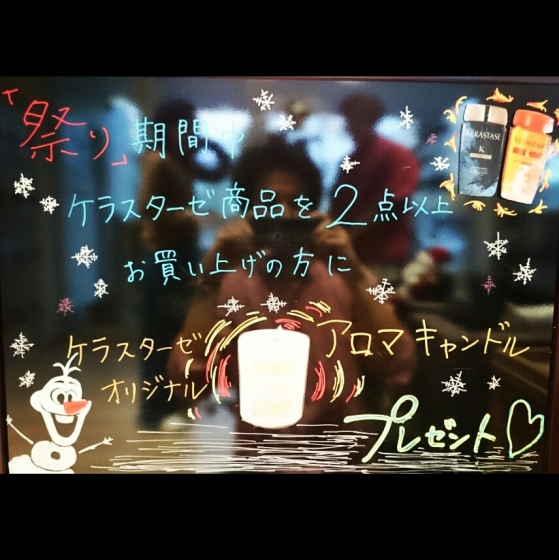 「祭り」期間中
ケラスターゼ商品を2点以上
お買い上げの方に
ケラスターゼ
オリジナル
アロマキャンドル
プレゼント♡
KERASTASE
K
KERASTASE